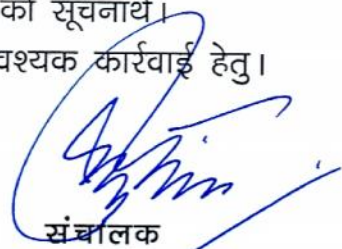 को सूचनार्थ।
कार्रवाई हेतु।
संचालक